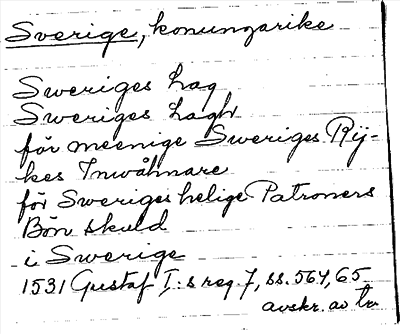 Sverige, konungarike
Sweriges Lag
Sweriges Lagh
för meenige Sweriges Rij-
kes Inwåhnare
för Sweriges helige Patroners
Bön skuld
i Swerige
1531 Gustaf I:s reg 7, ss. 564, 65
avskr. av tr